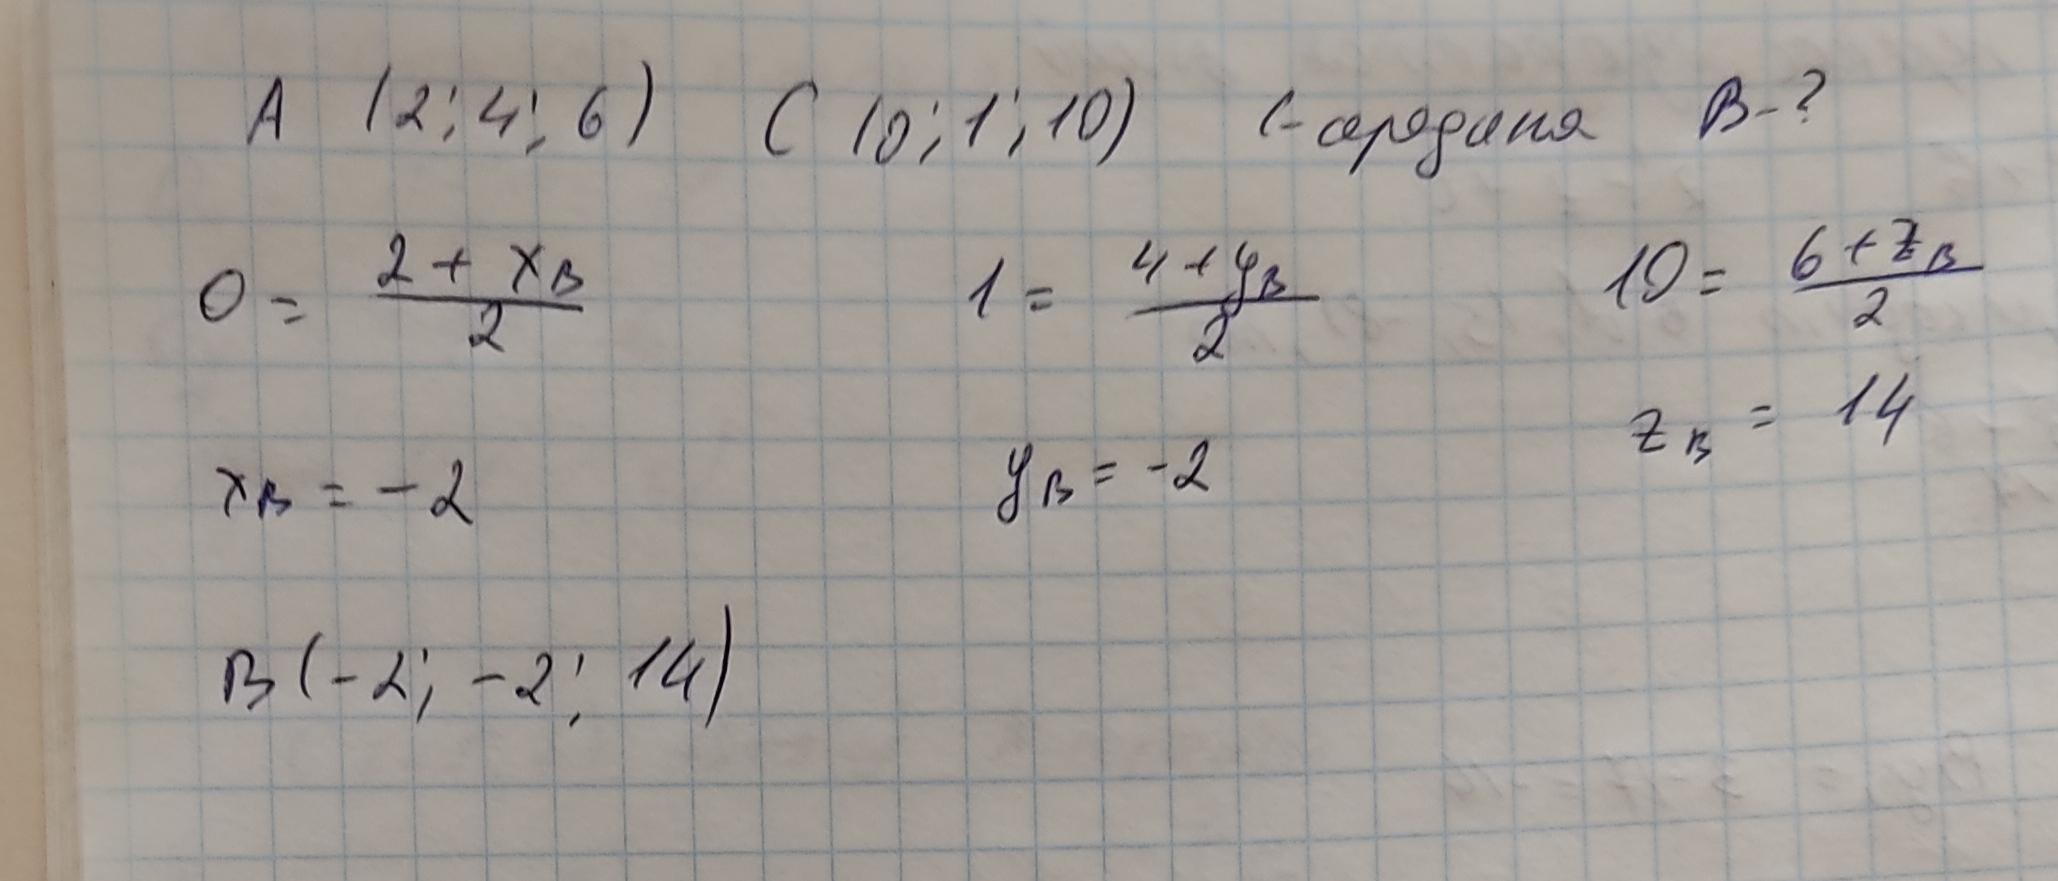 A (2; 4; 6) C (0; 1; 10) C-середина B-?
0 = (2 + x_B)/2 1 = (4 + y_B)/2 10 = (6 + z_B)/2
x_B = -2 y_B = -2 z_B = 14
B (-2; -2; 14)